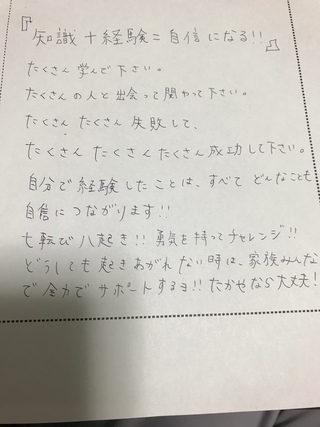 『知識+経験=自信になる!!』
たくさん学んで下さい。
たくさんの人と出会って関わって下さい。
たくさんたくさん失敗して、
たくさんたくさんたくさん成功して下さい。
自分で経験したことは、すべてどんなことも
自信につながります!!
七転び八起き!!勇気を持ってチャレンジ!!
どうしても起きあがれない時は、家族みんな
で全力でサポートするヨ!!たかやなら大丈夫!